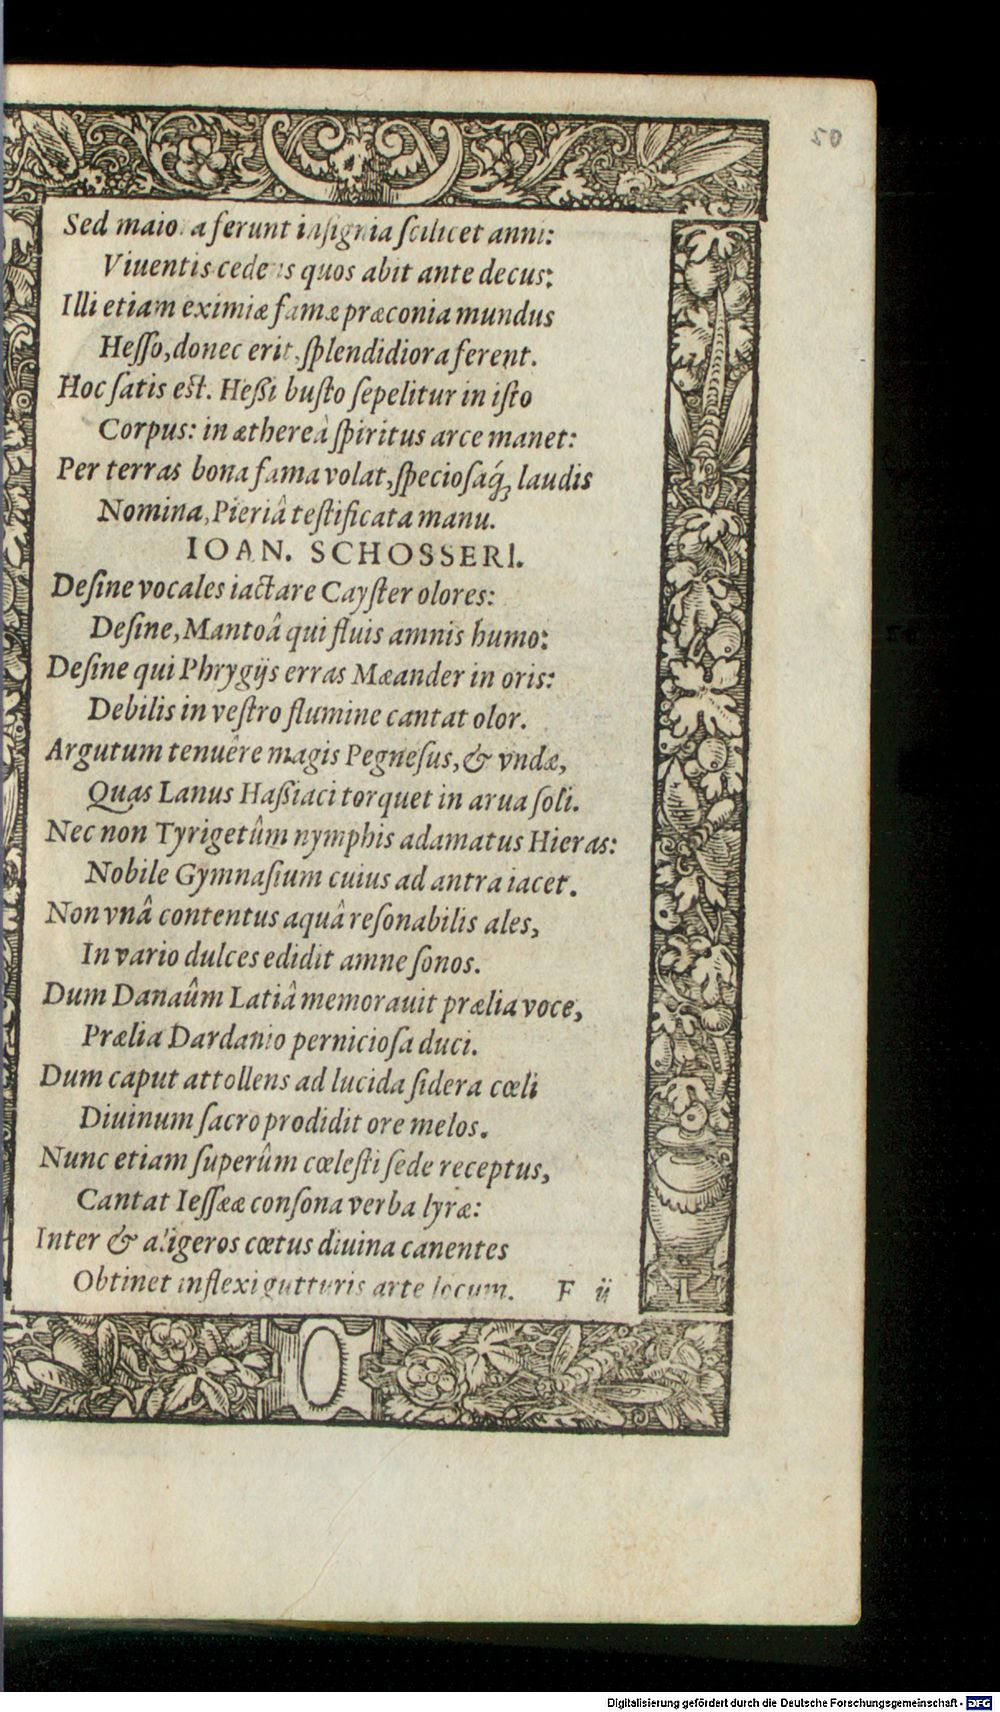 50
Sed maiora ferunt insignia scilicet anni:
Viuentis cedens quos abit ante decus:
Illi etiam eximiæ famæ præconia mundus
Hesso, donec erit, splendidiora ferent.
Hoc satis est. Heßi busto sepelitur in isto
Corpus: in æthereâ spiritus arce manet:
Per terras bona fama volat, speciosaq́; laudis
Nomina, Pieriâ testificata manu.
IOAN. SCHOSSERI.
Desine vocales iactare Cayster olores:
Desine, Mantoâ qui fluis amnis humo:
Desine qui Phrygijs erras Mæander in oris:
Debilis in vestro flumine cantat olor.
Argutum tenuêre magis Pegnesus, & vndæ,
Quas Lanus Haßiaci torquet in arua soli.
Nec non Tyrigetûm nymphis adamatus Hieras:
Nobile Gymnasium cuius ad antra iacet.
Non vnâ contentus aquâ resonabilis ales,
In vario dulces edidit amne sonos.
Dum Danaûm Latiâ memorauit prælia voce,
Prælia Dardanio perniciosa duci.
Dum caput attollens ad lucida sidera cœli
Diuinum sacro prodidit ore melos.
Nunc etiam superûm cœlesti sede receptus,
Cantat Iessææ consona verba lyræ:
Inter & aligeros cœtus diuina canentes
Obtinet inflexi gutturis arte locum. F ij
Digitalisierung gefördert durch die Deutsche Forschungsgemeinschaft - DFG